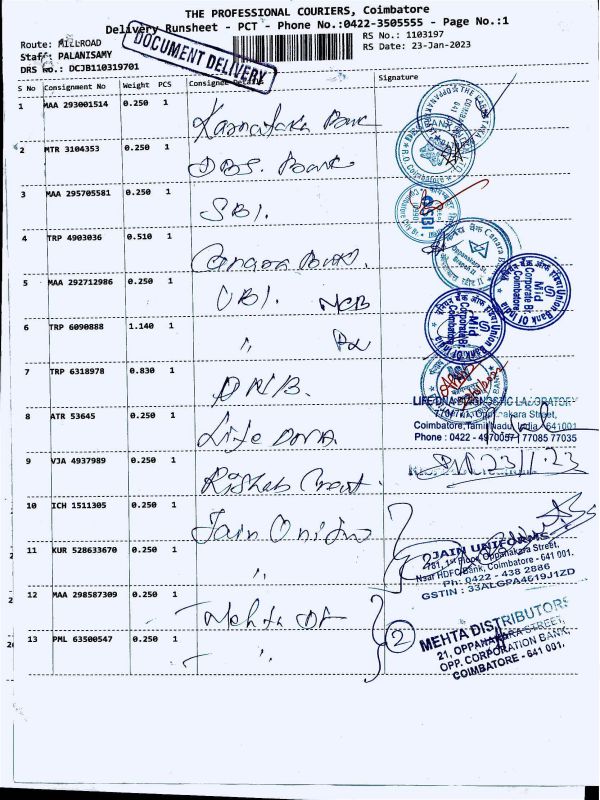 THE PROFESSIONAL COURIERS, Coimbatore
Delivery Runsheet - PCT - Phone No.:0422-3505555 - Page No.:1
Route: MILLROAD
RS No.: 1103197
Staff: PALANISAMY
RS Date: 23-Jan-2023
DRS No.: DCJB110319701
DOCUMENT DELIVERY
S No Consignment No Weight PCS Consignee Details Signature
1 MAA 293001514 0.250 1 Karnataka Bank
2 MTR 3104353 0.250 1 DBS. Bank
3 MAA 295705581 0.250 1 SBI.
4 TRP 4903036 0.510 1 Canara Bank.
5 MAA 292712986 0.250 1 UBI.
6 TRP 6090888 1.140 1 "
7 TRP 6318978 0.830 1
8 ATR 53645 0.250 1 Life DNA
9 VJA 4937989 0.250 1
10 ICH 1511305 0.250 1 Jain
11 KUR 528633670 0.250 1 "
12 MAA 298587309 0.250 1 Mehta
13 PML 63500547 0.250 1 "
SBI
Canara Bank
Union Bank Of India
Mid Corporate Br. Coimbatore
Union Bank Of India
Mid Corporate Br. Coimbatore
LIFE DNA DIAGNOSTIC LABORATORY
Oppanakara Street,
Coimbatore, Tamil Nadu, India - 641001
Phone : 0422 - 4970057 | 77085 77035
23/1/23
JAIN UNIFORMS
781, 1st Floor, Oppanakara Street,
Near HDFC Bank, Coimbatore - 641 001.
Ph: 0422 - 438 2886
GSTIN : 33ALGPA4619J1ZD
2
MEHTA DISTRIBUTORS
21, OPPANAKARA STREET,
OPP. CORPORATION BANK,
COIMBATORE - 641 001.